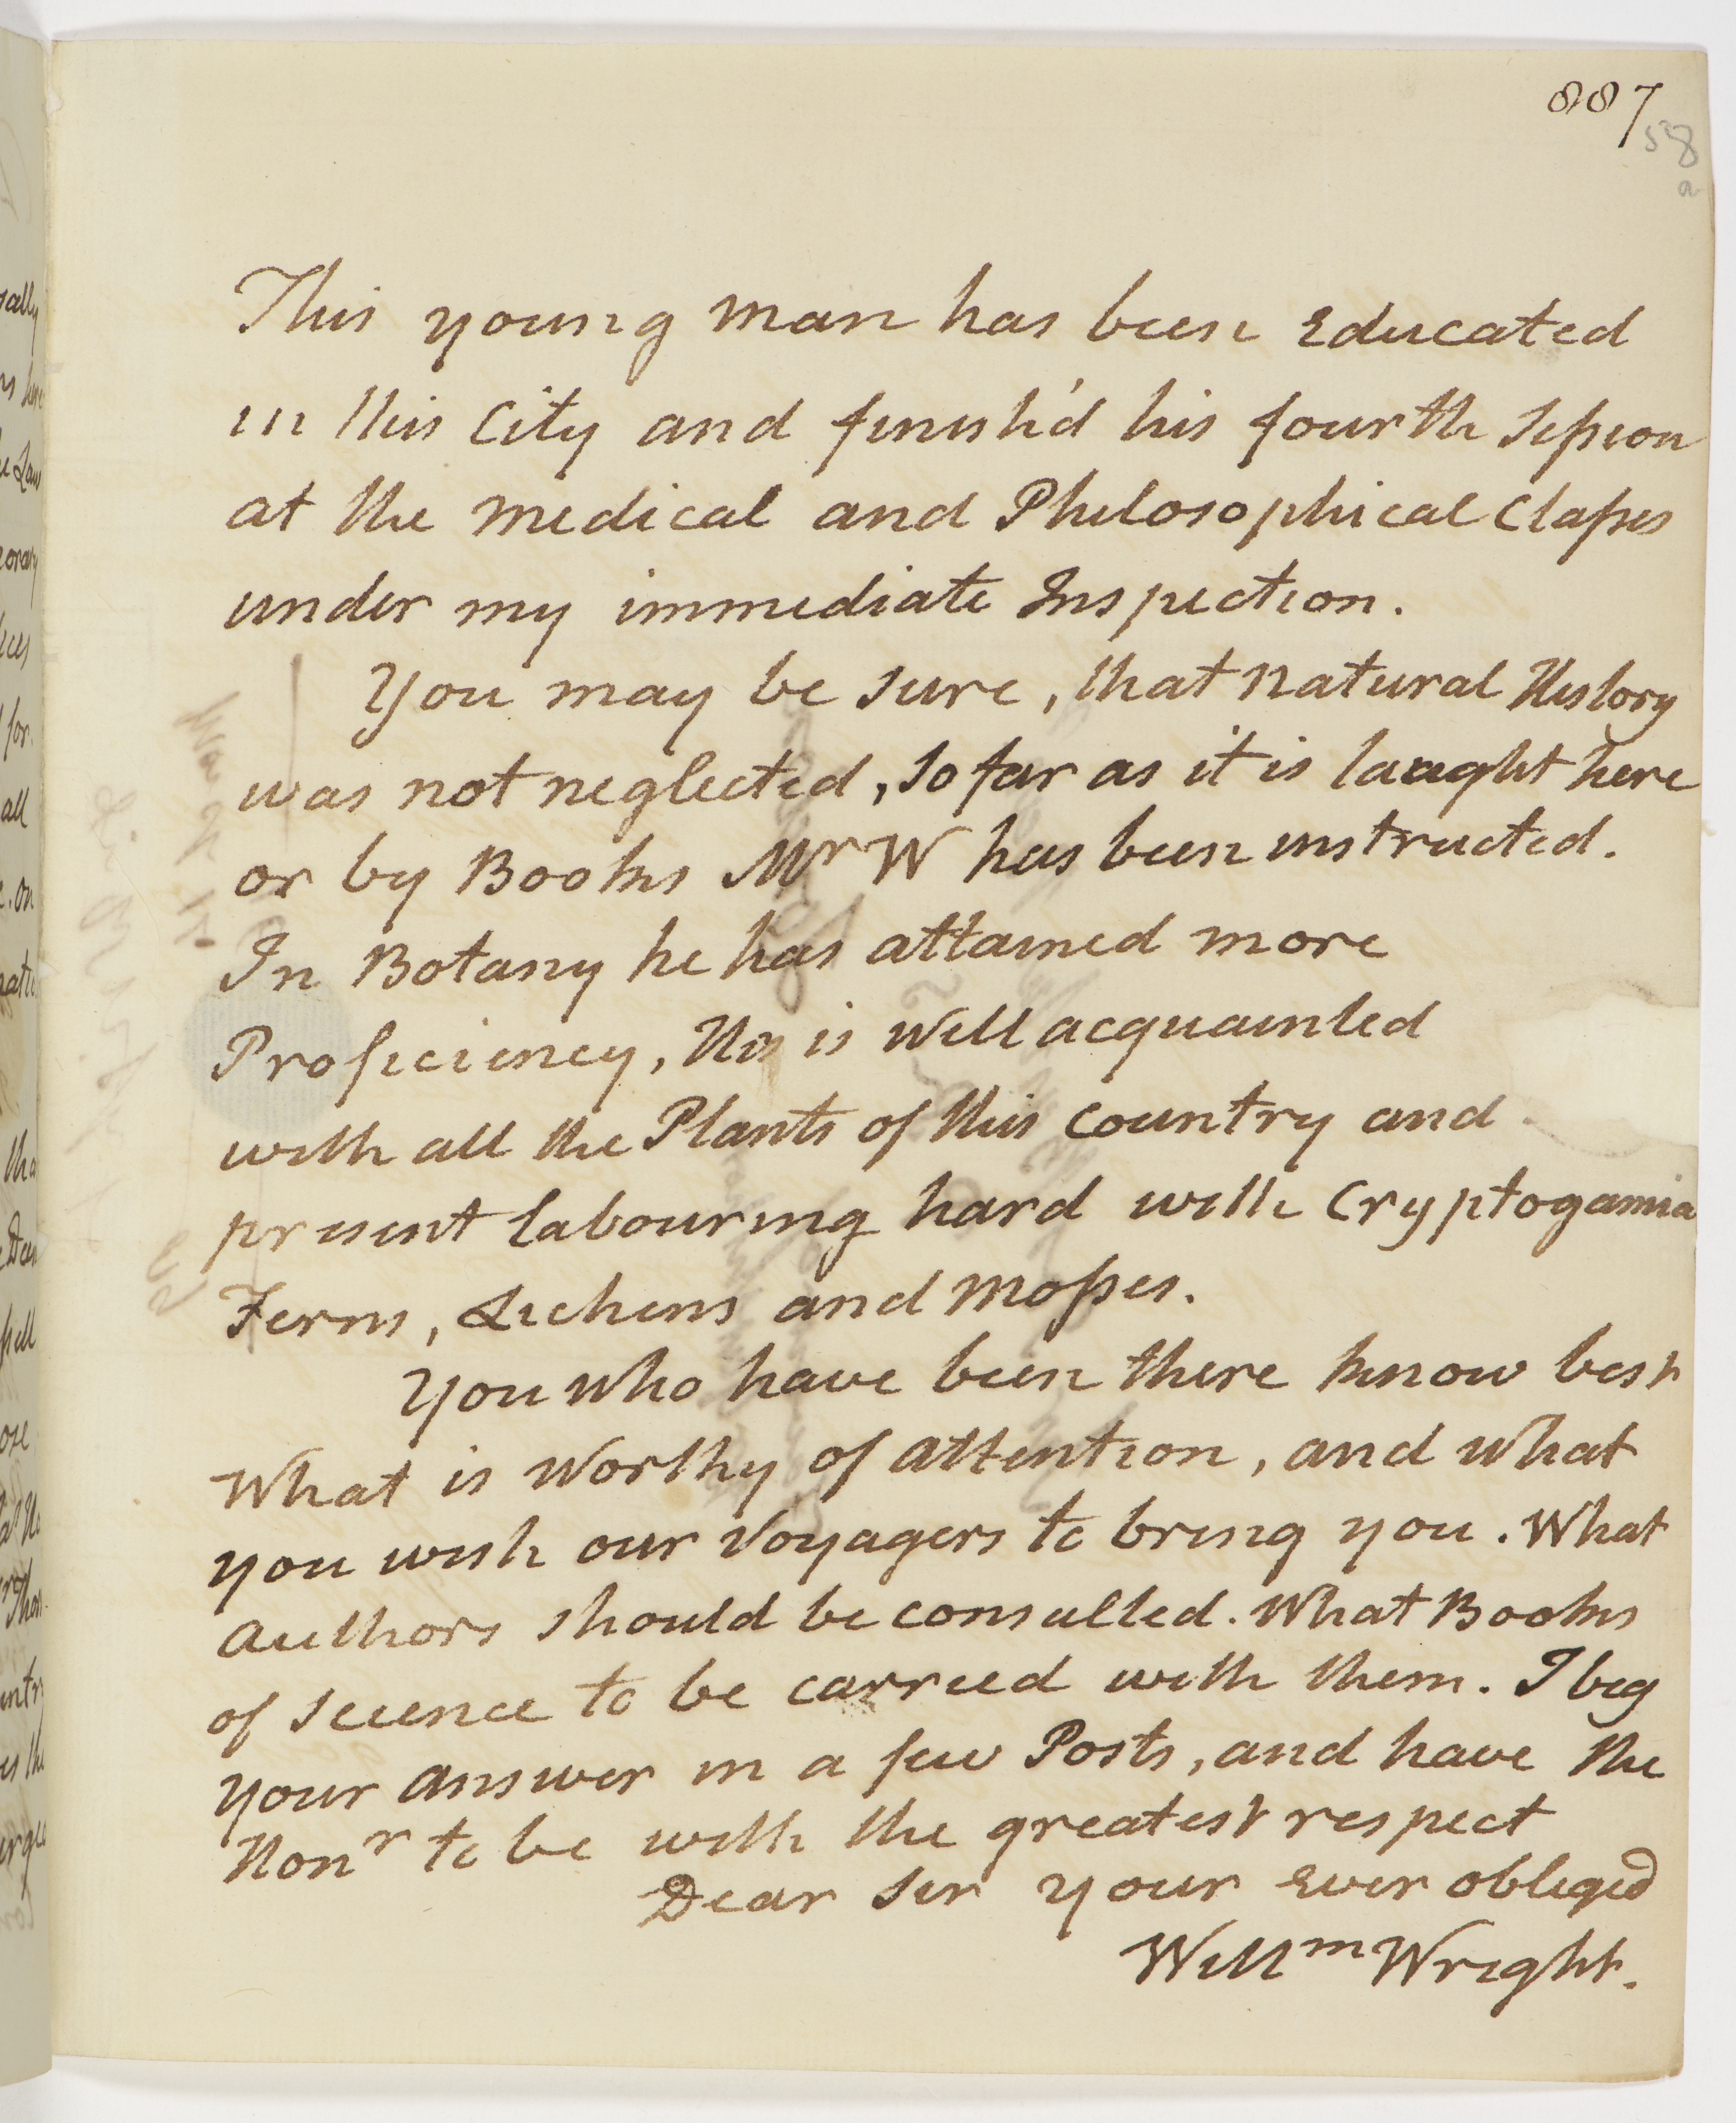 887
58
a
This young man has been Educated
in this City and finish'd his fourth Session
at the medical and Philosophical Classes
under my immediate Inspection.
You may be sure, that natural History
was not neglected, so far as it is taught here
or by Books Mr W has been instructed.
In Botany he has attained more
Proficiency, He is well acquainted
with all the Plants of this Country and
present labouring hard with Cryptogamia
Ferns, Lichens and Mosses.
You who have been there know best
What is worthy of attention, and what
you wish our Voyagers to bring you. What
Authors should be consulted. What Books
of science to be carried with them. I beg
your answer in a few Posts, and have the
Honr to be with the greatest respect
Dear Sir your Ever obliged
Willm Wright.